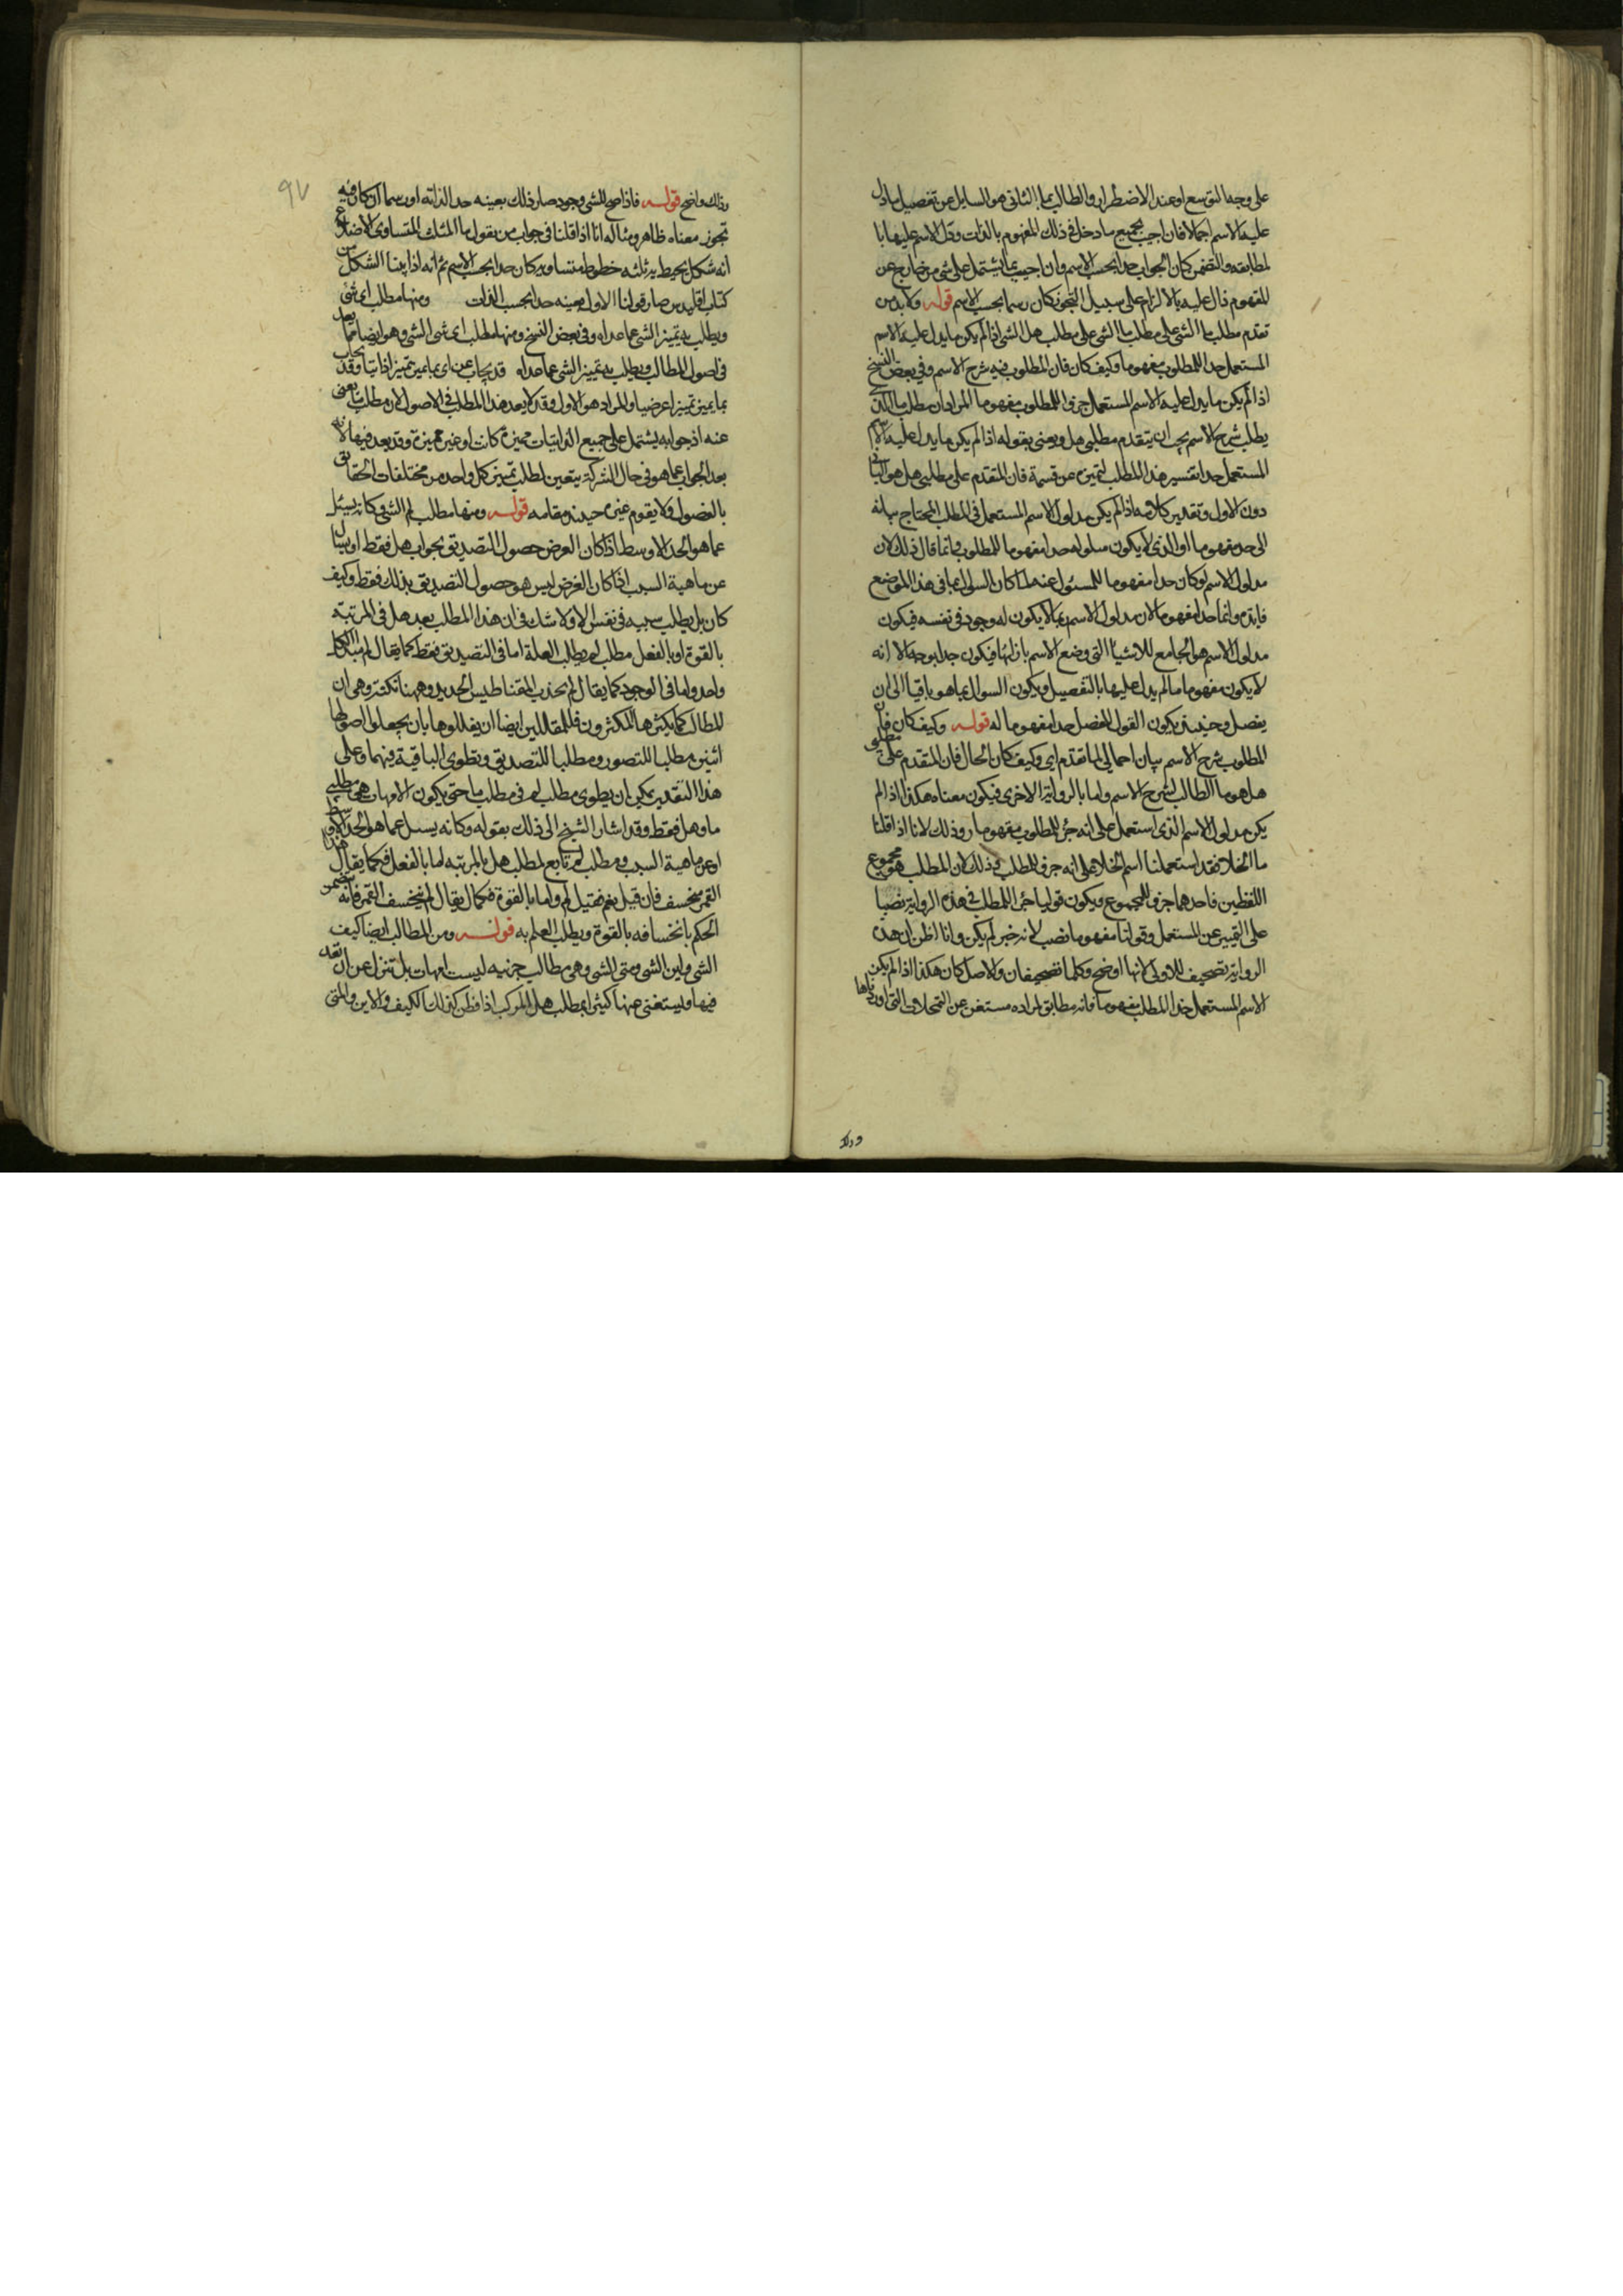 على وجه التوسع او عند الاضطرار والطالب بما الثانى هو السايل عن تفصيل ما دل
عليه الاسم اجمالا فان اجيب بجميع ما دخل فى ذلك المفهوم بالذات ودل الاسم عليها با
لمطابقه والتضمن كان الجواب حدا بحسب الاسم وان اجيب بما يشتمل على شى من خارج عن
المفهوم دال عليه بالالتزام على سبيل التجوز كان رسما بحسب الاسم قوله ولا بد من
تقدم مطلب ما الشى على مطلب هل الشى اذا لم يكن ما يدل عليه الاسم
المستعمل حدا للمطلوب مفهوما وكيف كان فان المطلوب فيه شرح الاسم وفى بعض النسخ
اذا لم يكن ما يدل عليه الاسم المستعمل جزءا للمطلوب مفهوما المراد ان مطلب ما الذى
يطلب شرح الاسم يجب ان يتقدم مطلبى هل ويعنى بقوله اذا لم يكن ما يدل عليه الاسم
المستعمل حدا تفسير هذا المطلب لتميزه عن قسيمه فان المتقدم على مطلبى هل هو الثانى
دون الاول وتقدير كلامه اذا لم يكن مدلول الاسم المستعمل فى المطلب المحتاج بيانه
الى حد مفهوما او الذى لا يكون مدلوله حدا مفهوما للمطلوب وانما قال ذلك لان
مدلول الاسم لو كان حدا مفهوما للمسئول عنه لما كان السوال بما فى هذا الموضع
فايده وانما حدا مفهوما لان مدلول الاسم بما لا يكون له وجود فى نفسه فيكون
مدلول الاسم هو الجامع للاشيا التى وضع الاسم بازائها فيكون حدا بوجه الا انه
لا يكون مفهوما ما لم يدل عليها بالتفصيل ويكون السوال بما هو باقيا الى ان
يفصل وحينئذ يكون القول المفصل حدا مفهوما له قوله وكيف كان فان
المطلوب شرح الاسم بيان احمالى لما تقدم اى وكيف كان الحال فان المتقدم على مطلبى
هل هو ما الطالب لشرح الاسم واما بالرواية الاخرى فيكون معناه هكذا اذا لم
يكن مدلول الاسم الذى استعمل على انه جزء المطلوب مفهوما وذلك لانا اذا قلنا
ما الخلا فقد استعملنا اسم الخلا على انه جزء المطلب وذلك لان المطلب هو مجموع
اللفظين فاحدهما جزء المجموع ويكون قولنا جزء المطلب فى هذه الرواية نصبا
على التمييز عن المستعمل وقولنا مفهوما نصب لانه خبر لم يكن وانا اظن ان هذه
الرواية تصحيف للاولى لانها اوضح وكلما تصحيفان والاصل كان هكذا اذا لم يكن
الاسم المستعمل حدا المطلب مفهوما فانه مطابق لمراده مستغن عن التمحلات التى اوردناها
وذلك
٩٧
وذلك واضح قوله فاذا صح للشى وجود صار ذلك بعينه حدا لذاته او رسما ان كان فيه
تجوز معناه ظاهر ومثاله انا اذا قلنا فى جواب من يقول ما المثلث المتساوى الاضلاع
انه شكل يحيط به ثلثه خطوط متساويه كان حدا بحسب الاسم ثم انه اذا بينا الشكل من
كتاب اقليدس صار قولنا الاول بعينه حدا بحسب الذات ومنها مطلب اى شى
ويطلب به تميز الشى عما عداه وفى بعض النسخ ومنها مطلب اى شى الشى وهو ايضا مما يعد
فى اصول المطالب ويطلب به تمييز الشى عما عداه قد يجاب عن اى بما يميز تميزا ذاتيا وقد يجاب
بما يميز تميزا عرضيا والمراد هو الاول وقد لا يعد هذا المطلب فى الاصول لان مطلب ما يغنى
عنه اذ جوابه يشتمل على جميع الذاتيات مميزة كانت او غير مميزة وقد يعد فيها لانه
بعد الجواب عما هو فى حال الشركة يتعين لطلب تميز كل واحد من مختلفات الحقايق
بالفصول ولا يقوم غيره حينئذ مقامه قوله ومنها مطلب لم الشى وكانه يسئل
عما هو الحد الاوسط اذا كان الغرض حصول التصديق بجواب هل فقط او يسال
عن ماهية السبب اذا كان الغرض ليس هو حصول التصديق بذلك فقط وكيف
كان بل يطلب سببه فى نفس الامر ولا شك فى ان هذا المطلب بعد هل فى المرتبة
بالقوة او بالفعل مطلب لم يطلب العلة اما فى التصديق فقط كما يقال لم
واحد واما فى الوجود كما يقال لم يجذب المقناطيس الحديد وههنا نكتة وهى ان
المطالب كما يكثرها المكثرون فللمقللين ايضا ان يقللوها بان يجعلوا اصولها
اثنين مطلبا للتصور ومطلبا للتصديق ويطوى الباقية فيهما وعلى
هذا التقدير يمكن ان يطوى مطلب لم فى مطلب ما حتى يكون الامهات هى مطلبى
ما وهل فقط وقد اشار الشيخ الى ذلك بقوله وكانه يسئل عما هو الحد الاوسط
او عن ماهية السبب ومطلب لم تابع لمطلب هل بالمرتبه اما بالفعل فكما يقال هل
القمر منخسف فان قيل نعم فقيل لم واما بالقوة فكما يقال لم ينخسف القمر فانه يتضمن
الحكم بانخسافه بالقوة ويطلب العلم به قوله ومن المطالب ايضا كيف
الشى واين الشى ومتى الشى وهى مطالب جزئيه ليست امهات بل تنزل عن ان تعد
فيها ويستغنى عنها كثيرا بمطلب هل المركب اذا فطن لذلك الكيف والاين والمتى